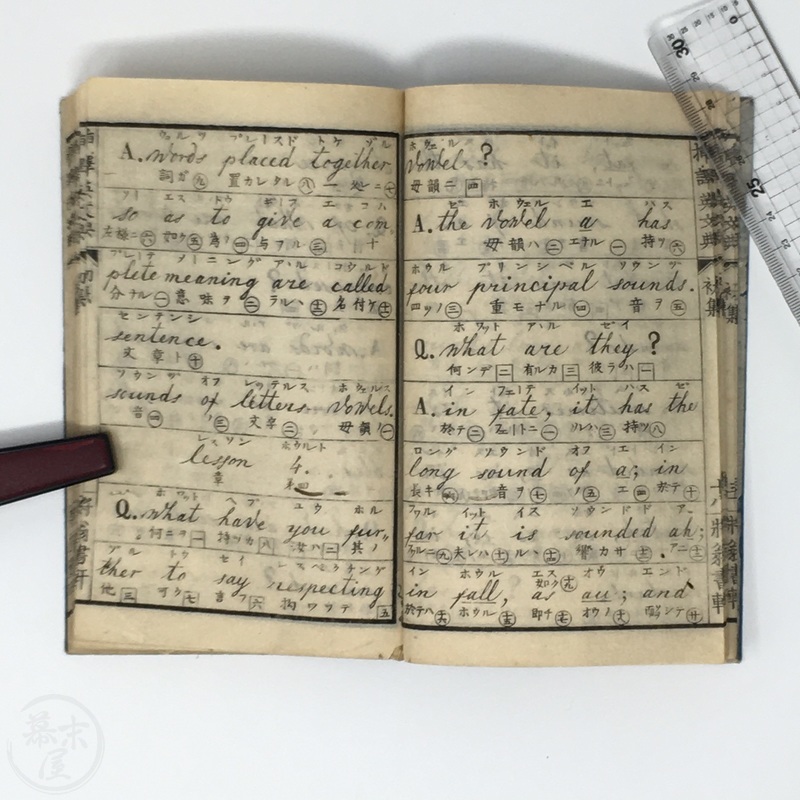 ウォルヅ プレースド トゲ ゾル
A. words placed together
詞ガ九 置カレタル八 一処ニ七
ソー エス トウ ギーフ エ コム
so as to give a com
六 如ク五 為ノ四 与フル三 十
プレーテ メーニング アール コウルド
plete meaning are called
分ナル一 意味ヲ二 ラルハ 名付ケ
センテンシ
sentence.
文章ト十
ソウンヅ オフ レッテルス ホウェルス
sounds of letters Vowels.
音四 ノ三 文字二 母韻ノ一
レスソン ホウルト
lesson 4.
章 第四
ホワット ヘブ ユウ ホル
Q. what have you fur„
何ニヲ一 持ツカ八 汝ハ二 其ノ
ゾル トウ セイ レスペクチング
ther to say respecting
他三 可ク七 言フ六 拘ワツテ五
ホウェル
Vowel ?
母韻ニ四
ゼ ホウェル エ ハス
A. the vowel a has
母韻ハ二 エナル一 持ツ六
ホウル プリンシペル ソウンヅ
four principal sounds.
四ツノ三 重モナル四 音ヲ五
ホワット アール ゼイ
Q. what are they ?
何ンデ二 有ルカ三 彼ラハ一
イン フェーテ イット ハス ゼ
A. in fate, it has the
於テ二 フェートニ一 ハ三 持ツ八
ロング ソウンド オフ エ イン
long sound of a; in
長キ六 音ヲ七 ノ五 エ四 於テ十
フワル イット イス ソウンドド アー
far it is sounded ah;
九 夫レハ十 響カサ アニ
イン ホウル エス オウ エンド
in fall, as au; and
於テハ ホウル 如ク 即チ オウノ 而シテ
挿訳英文典
初集
幕末屋